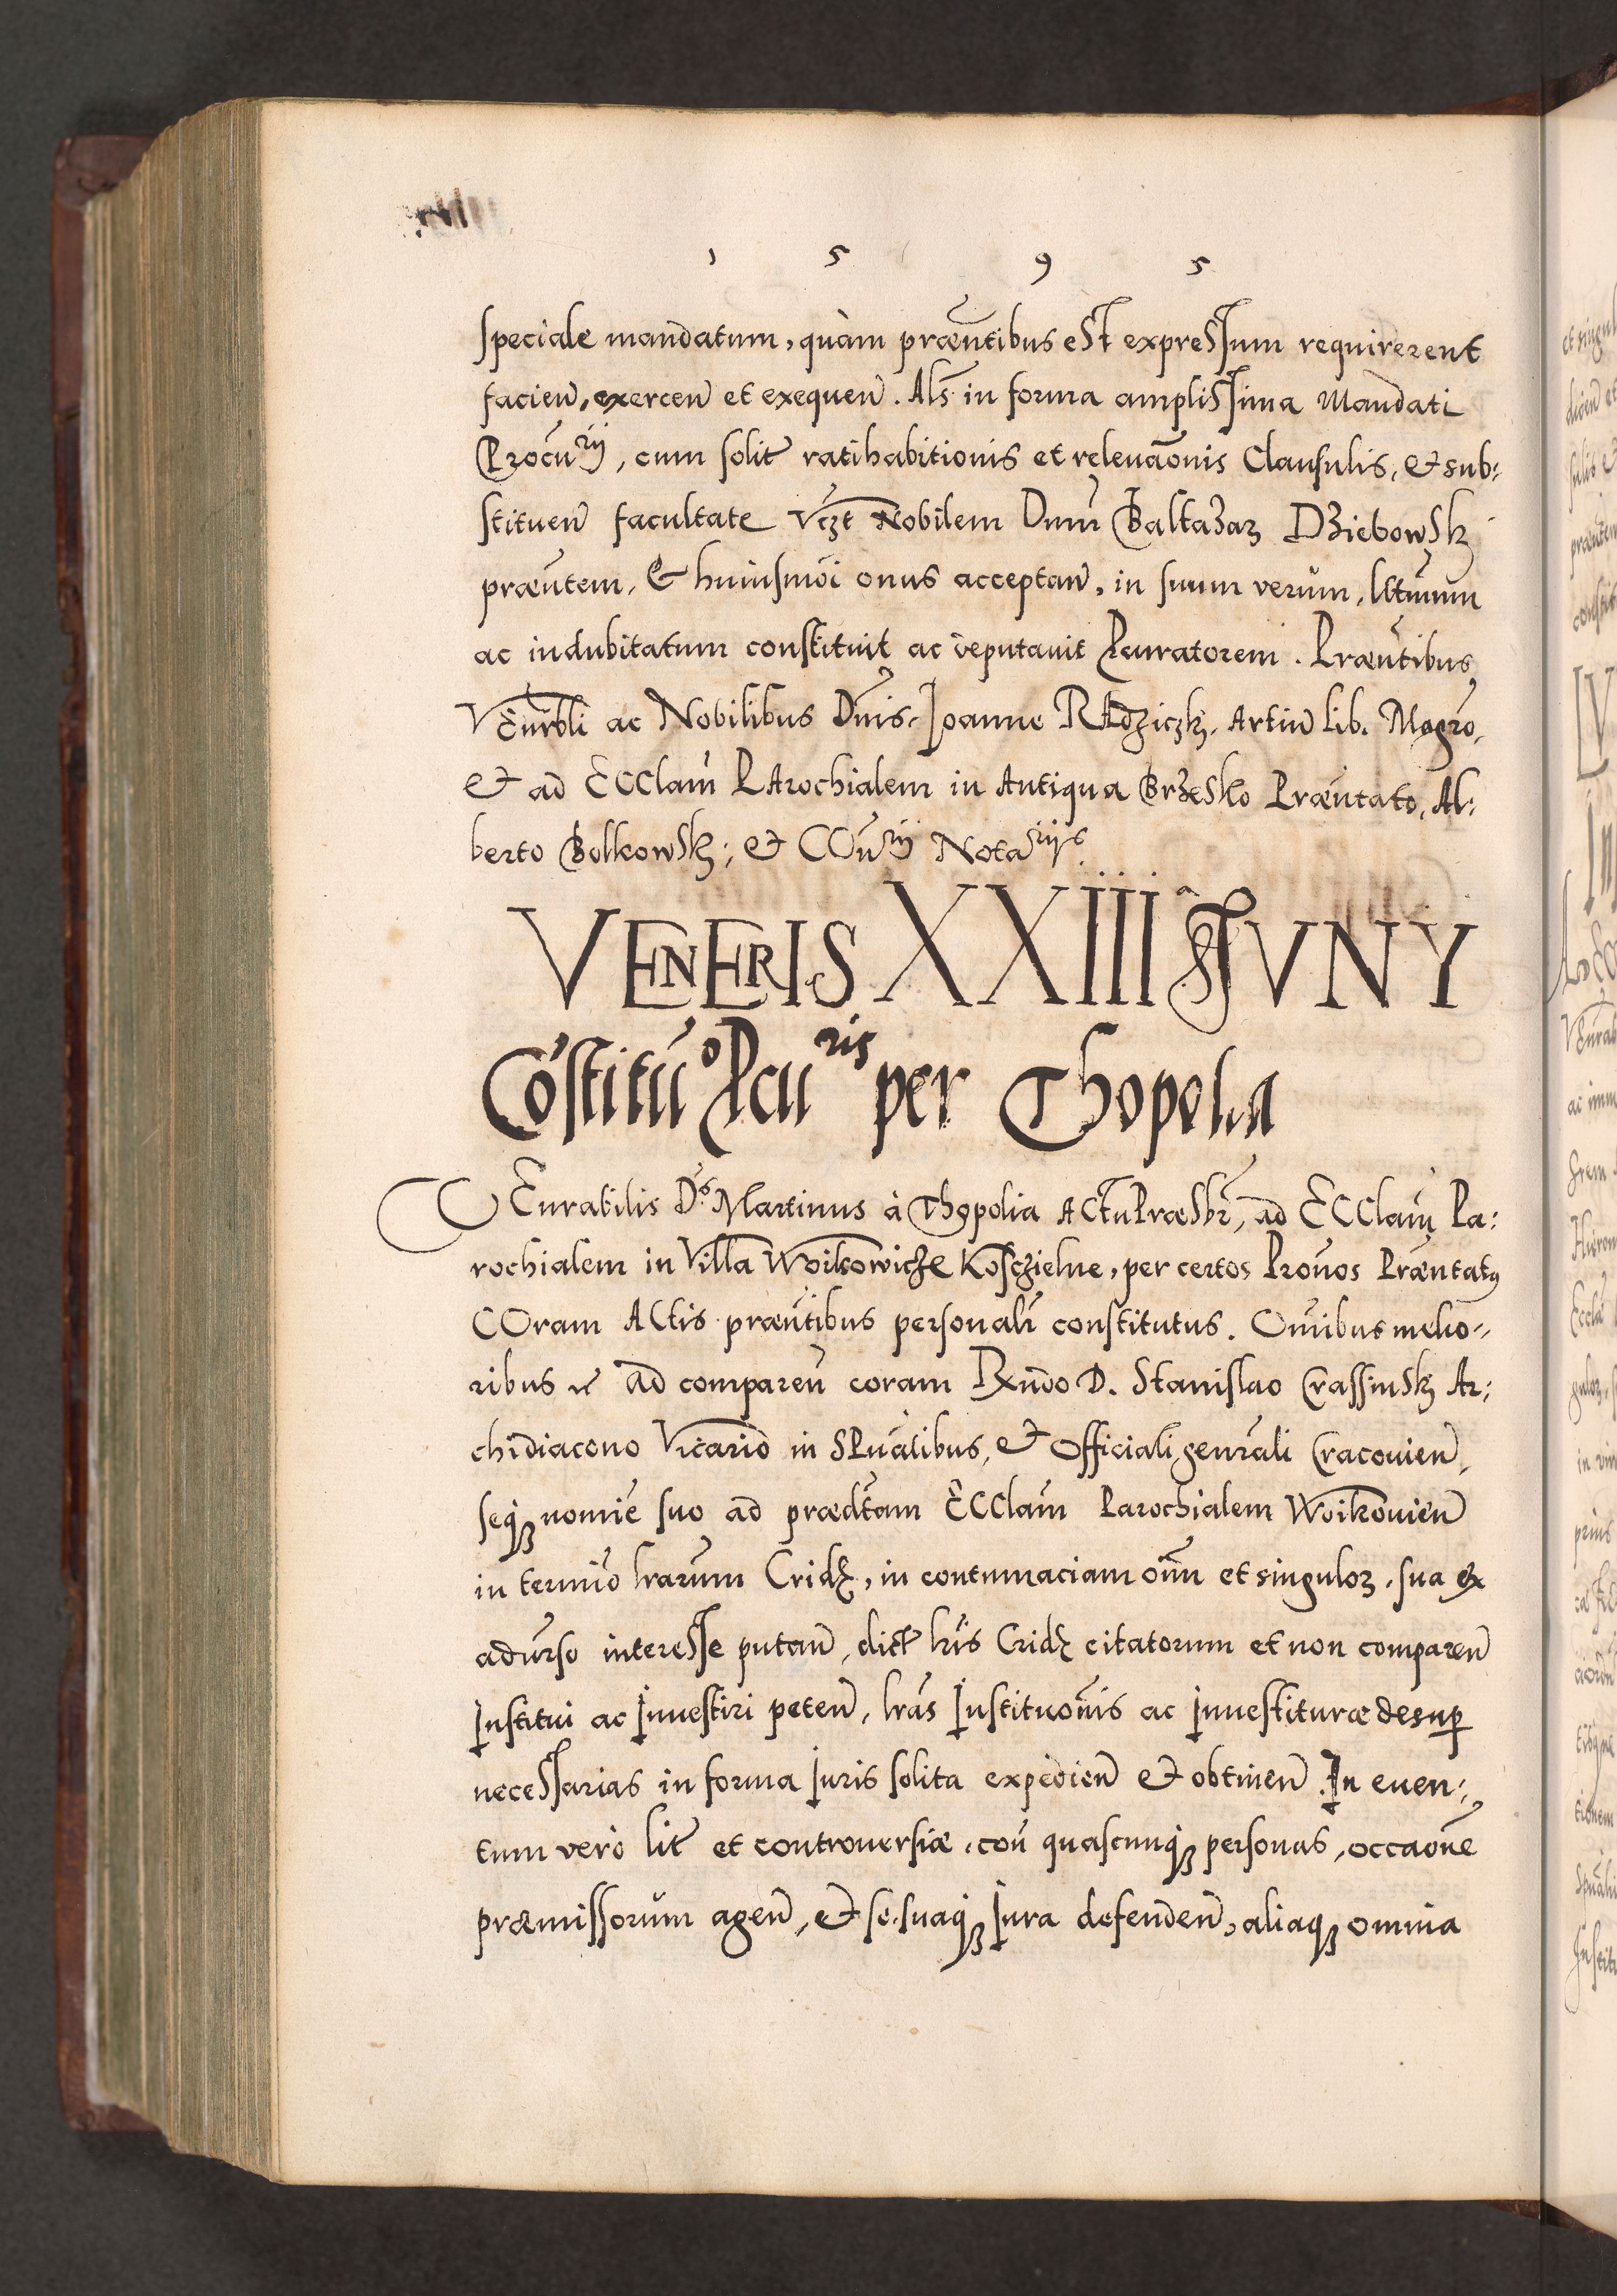 1 5 9 5
speciale mandatum, quàm præntibus est expressum requirerent
facien, exercen et exequen. Als in forma amplissima Mandati
Procurij, cum solit ratihabitionis et relevaonis Clausulis, et sub:
stituen facultate Vczt Nobilem Dnum Baltazar Dziebowsk
præntem, et huiusmoi onus acceptan, in suum verum, lttimum
ac indubitatum constituit ac deputavit Pcuratorem. Præntibus
Venrbli ac Nobilibus Dnis, Joanne Radziczk, Artiu Lib. Magro,
et ad Ecclam Parochialem in Antiqua Brzesko Præntato, Al:
berto Bolkowsk; et Conrij Notarijs.
VENERIS XXIII JUNY
Constituo Pcuris per Thopolia
Venrabilis Ds Martinus à Thopolia Actu Præsbr, ad Ecclam Pa:
rochialem in Villa Woikowicze Kosczielne, per certos Pronos Præntatus
Coram Actis præntibus personalr constitutus. Omnibus melio:
ribus etc ad comparen coram Rxndo D. Stanislao Crassinsk Ar:
chidiacono Vicario in Spualibus, et Officiali genrali Cracovien,
seque nomie suo ad prædtam Ecclam Parochialem Woikovien
in termino lrarum Cridæ, in contumaciam omnium et singulor, sua ex
adurso interesse putan, dict lris Cridæ citatorum et non comparen
institui ac investiri peten, lras Instituonis ac Investituræ desup
necessarias in forma iuris solita expedien et obtinen. In even:
tum verò lit et controversiæ, con quascunque personas, occaone
præmissorum agen, et se, suaque iura defenden, aliaque omnia